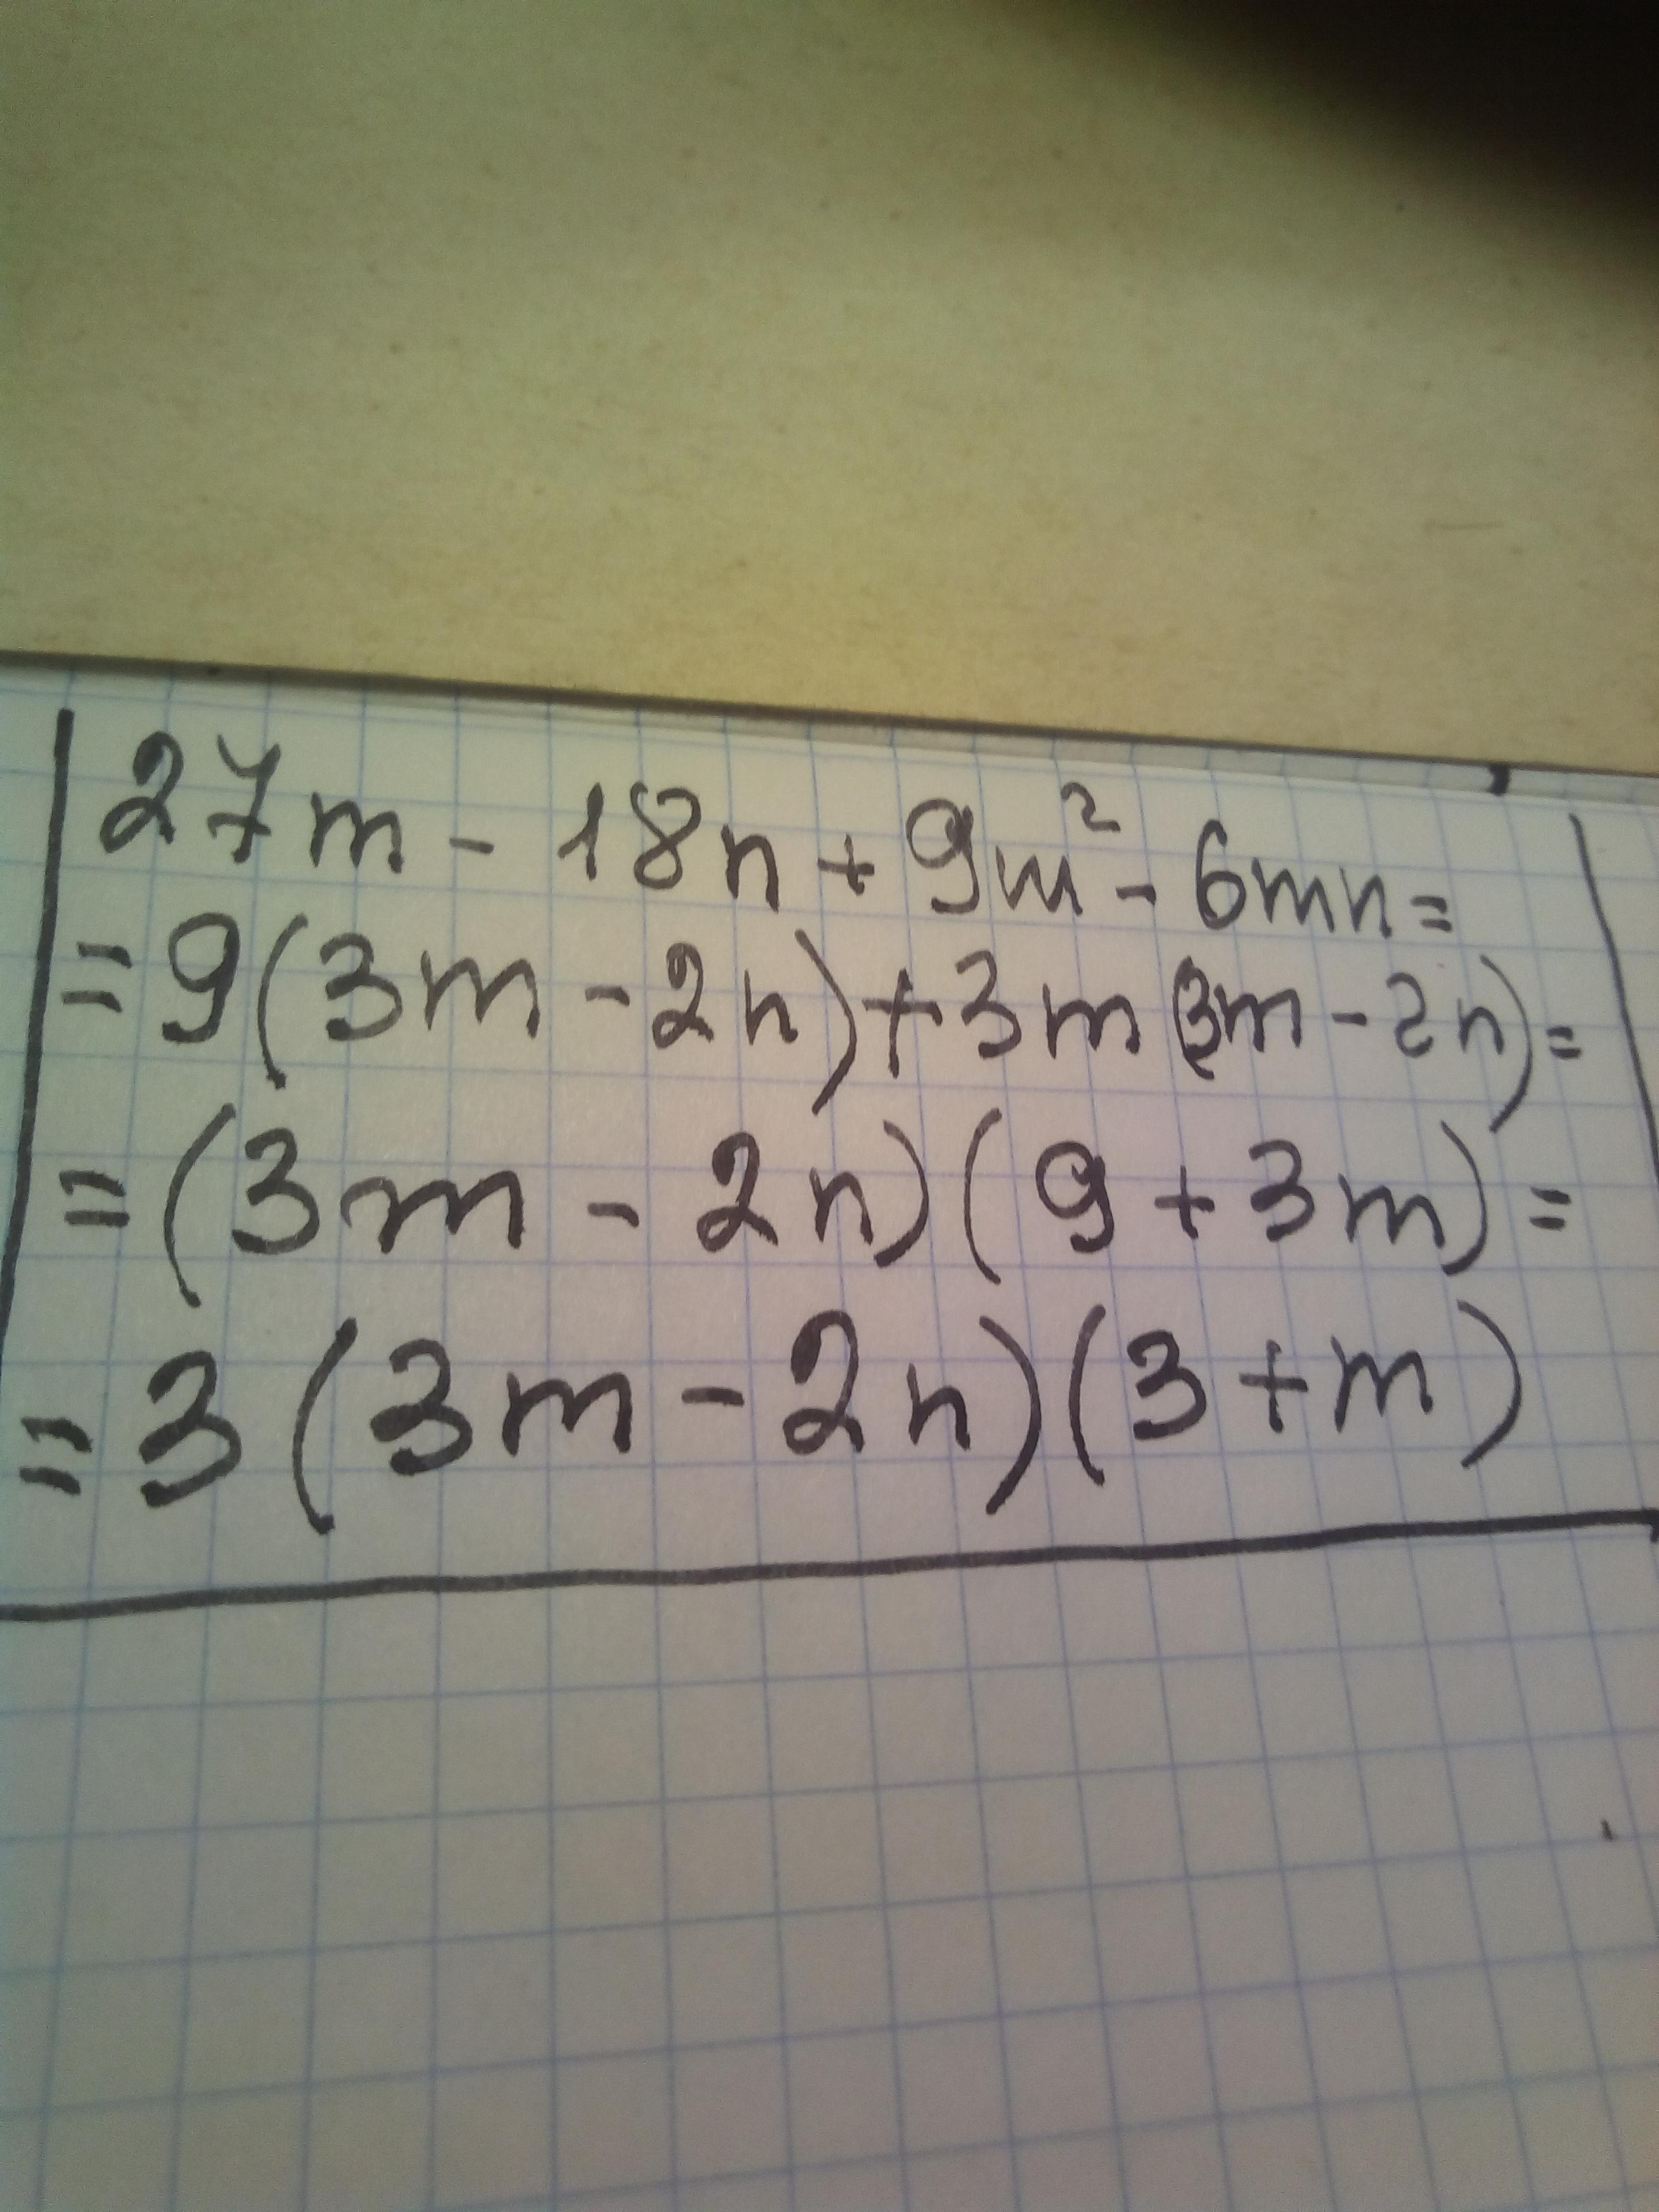 27m - 18n + 9m² - 6mn =
= 9(3m - 2n) + 3m(3m - 2n) =
= (3m - 2n)(9 + 3m) =
= 3(3m - 2n)(3 + m)